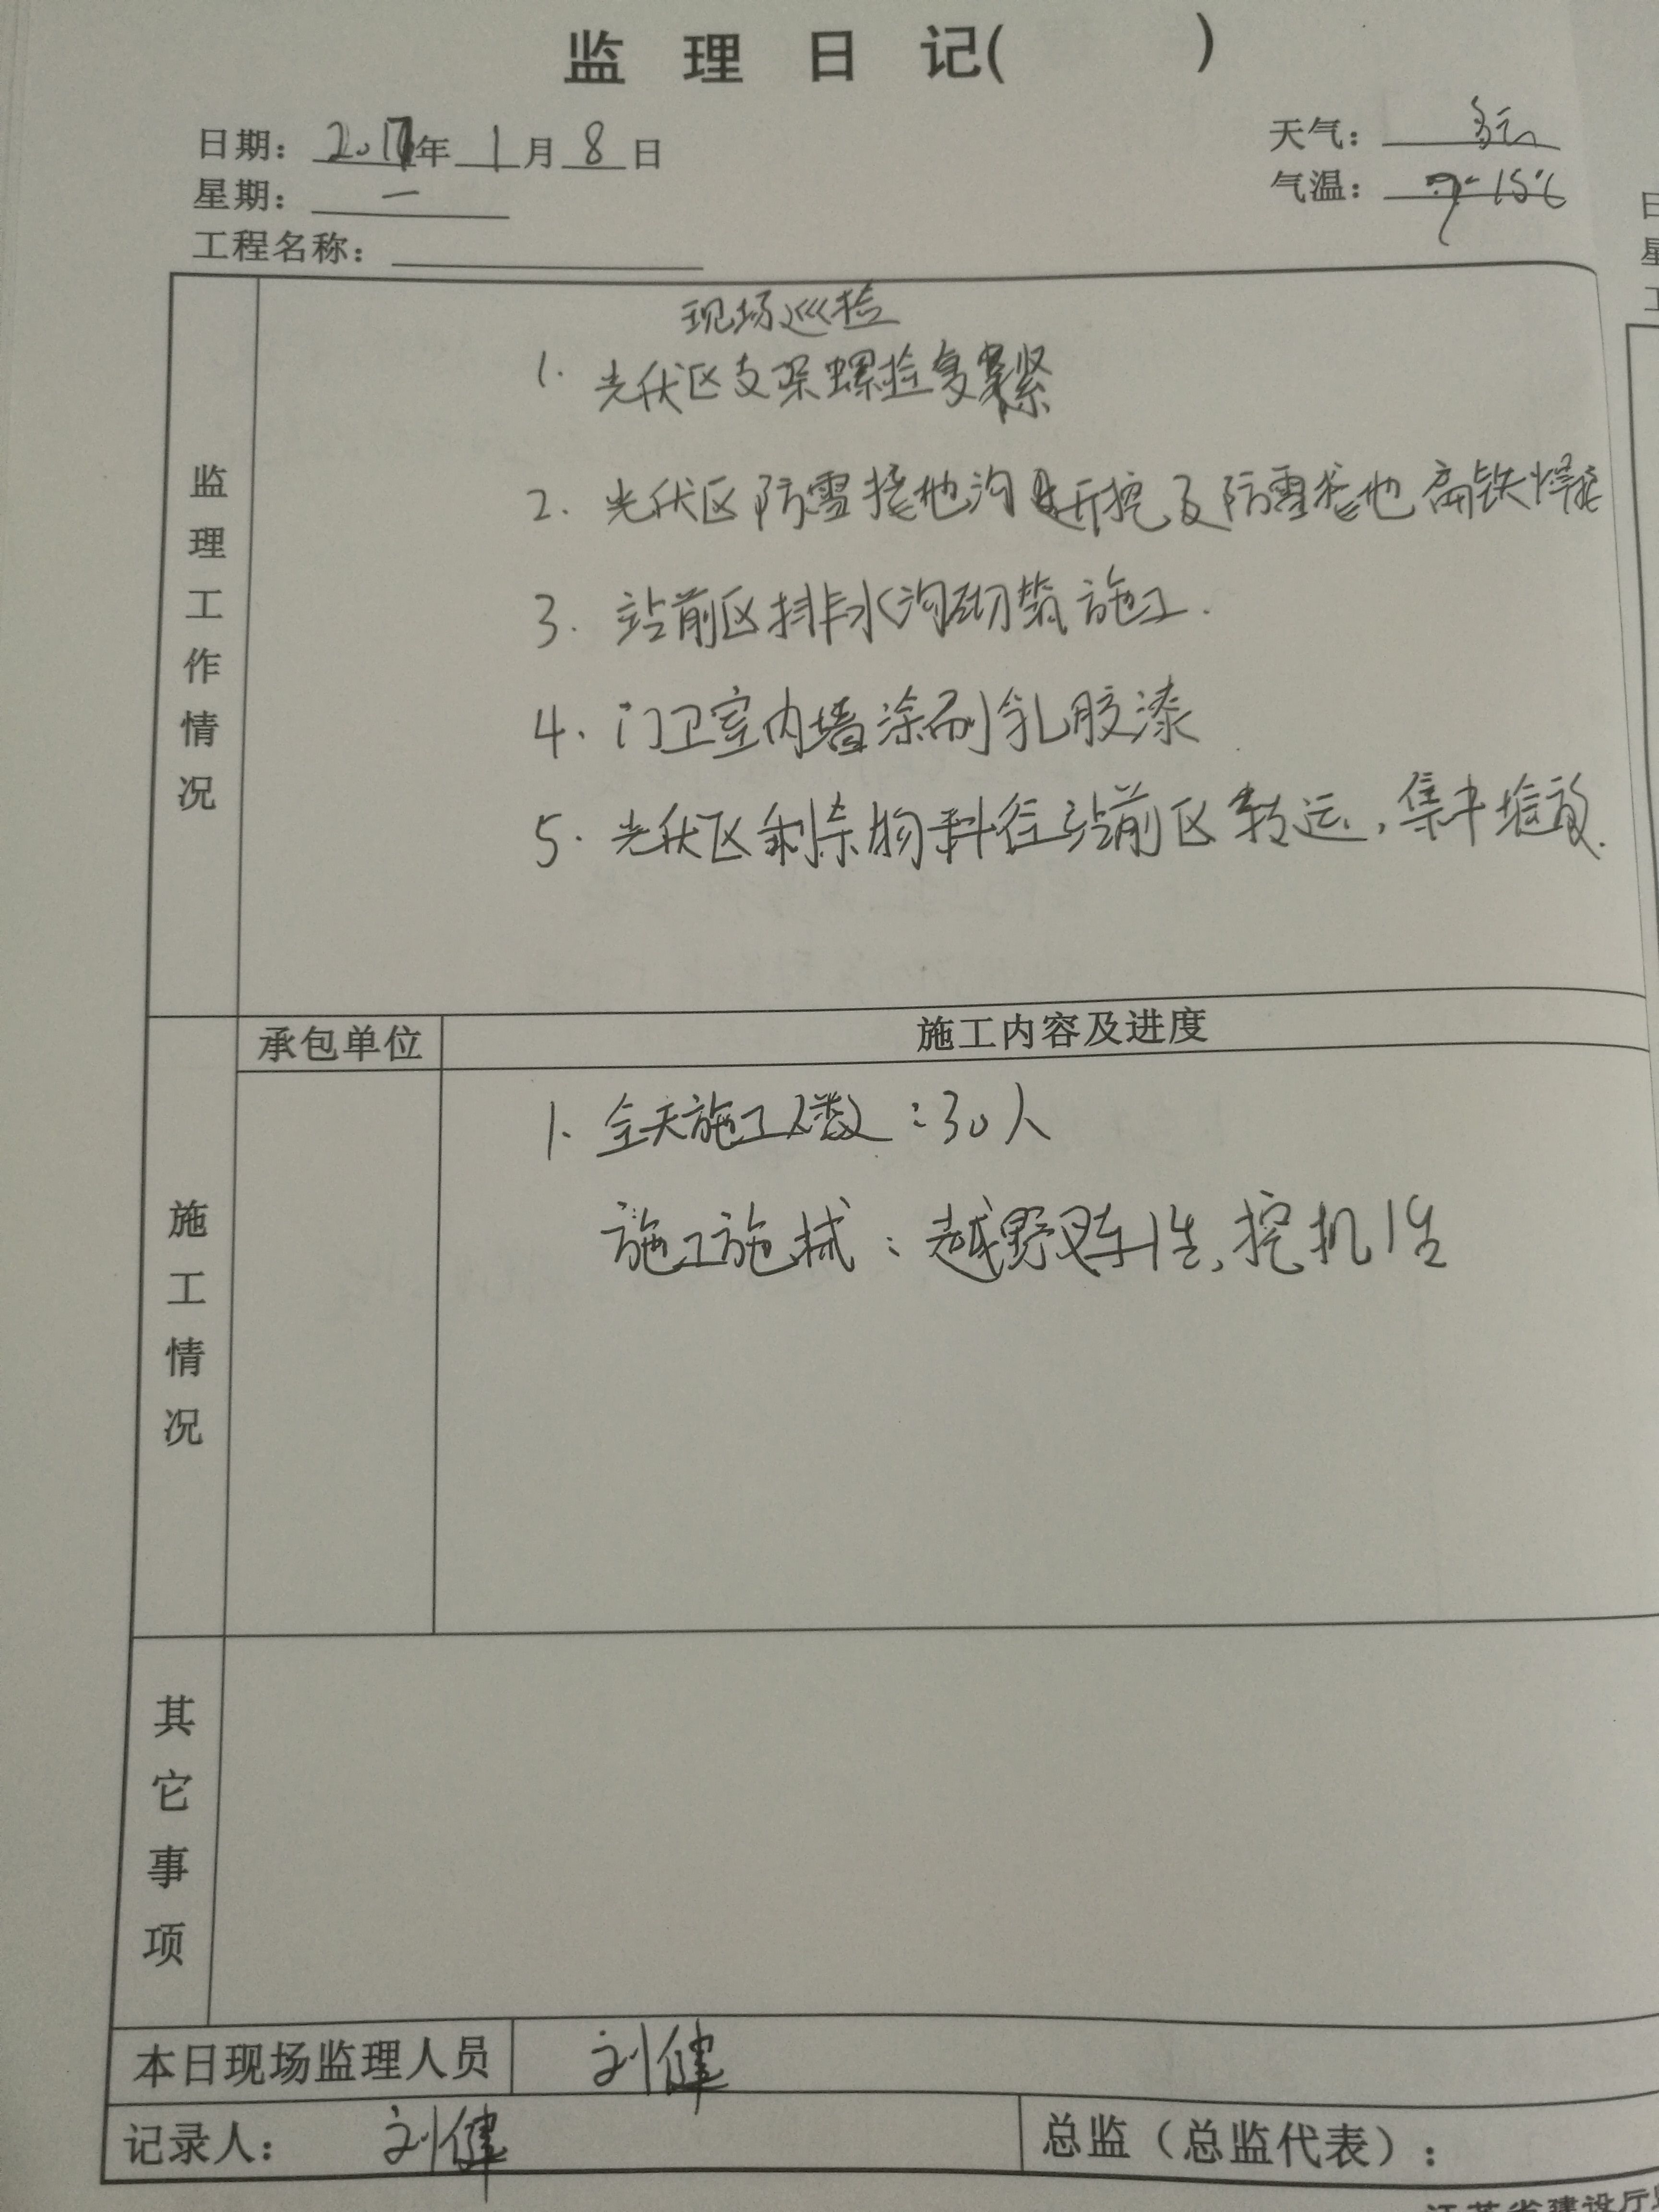 监理日记( )
日期：2017年1月8日
天气：多云
星期：一
气温：7-15℃
工程名称：
监理工作情况
现场巡检
1. 光伏区支架螺栓复紧
2. 光伏区防雷接地沟开挖及防雷接地扁铁焊接
3. 站前区排水沟砌筑施工.
4. 门卫室内墙涂刷乳胶漆
5. 光伏区剩余物料往站前区转运，集中堆放.
施工情况
承包单位
施工内容及进度
1. 今天施工人数：30人
施工施械：越野叉车1生，挖机1生
其它事项
本日现场监理人员 刘健
记录人：刘健
总监（总监代表）：
江苏省建设厅